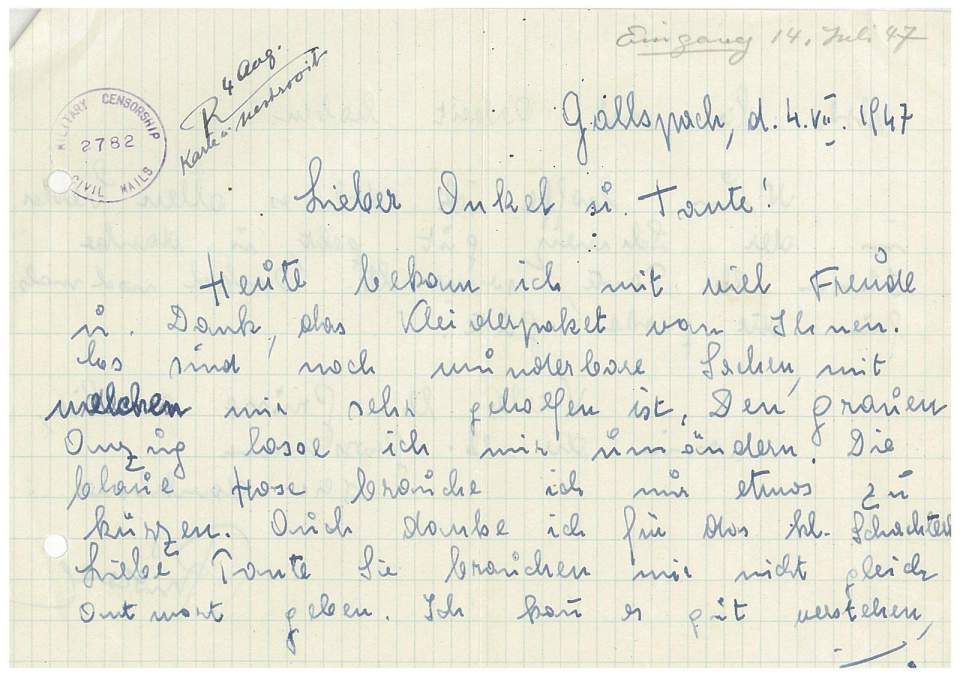 Eingang 14. Juli 47
R 4 Aug.
Karte
MILITARY CENSORSHIP
2782
CIVIL MAILS
Gallspach, d. 4. VII. 1947
Lieber Onkel u. Tante!
Heute bekam ich mit viel Freude
u. Dank, das Kleiderpaket von Ihnen.
Das sind noch wunderbare Sachen, mit
welchen mir sehr geholfen ist. Den grauen
Anzug lasse ich mir umändern. Die
blaue Hose brauche ich nur etwas zu
kürzen. Auch danke ich für das kl. Schachterl
Liebe Tante Sie brauchen mir nicht gleich
Antwort geben. Ich kann es gut verstehen,